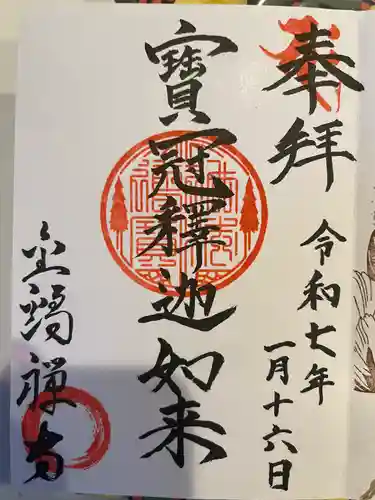 奉拝
令和七年
一月十六日
寶冠釋迦如来
金鳳禅寺